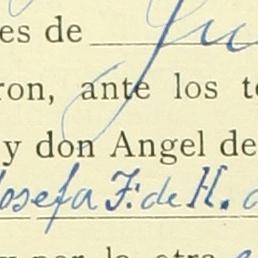 es de
ron, ante los
y don Angel de
Josefa F. de H.